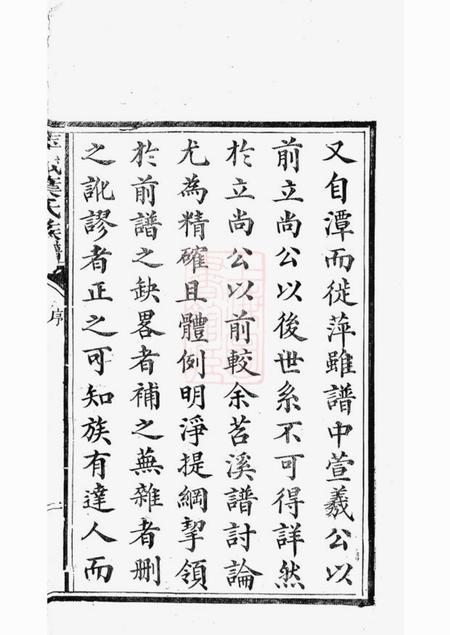 又自潭而徙萍雖譜中萱羲公以
前立尚公以後世系不可得詳然
於立尚公以前較余苕溪譜討論
尤為精確且體例明淨提綱挈領
於前譜之缺畧者補之蕪雜者刪
之訛謬者正之可知族有達人而
氏族譜
序
二